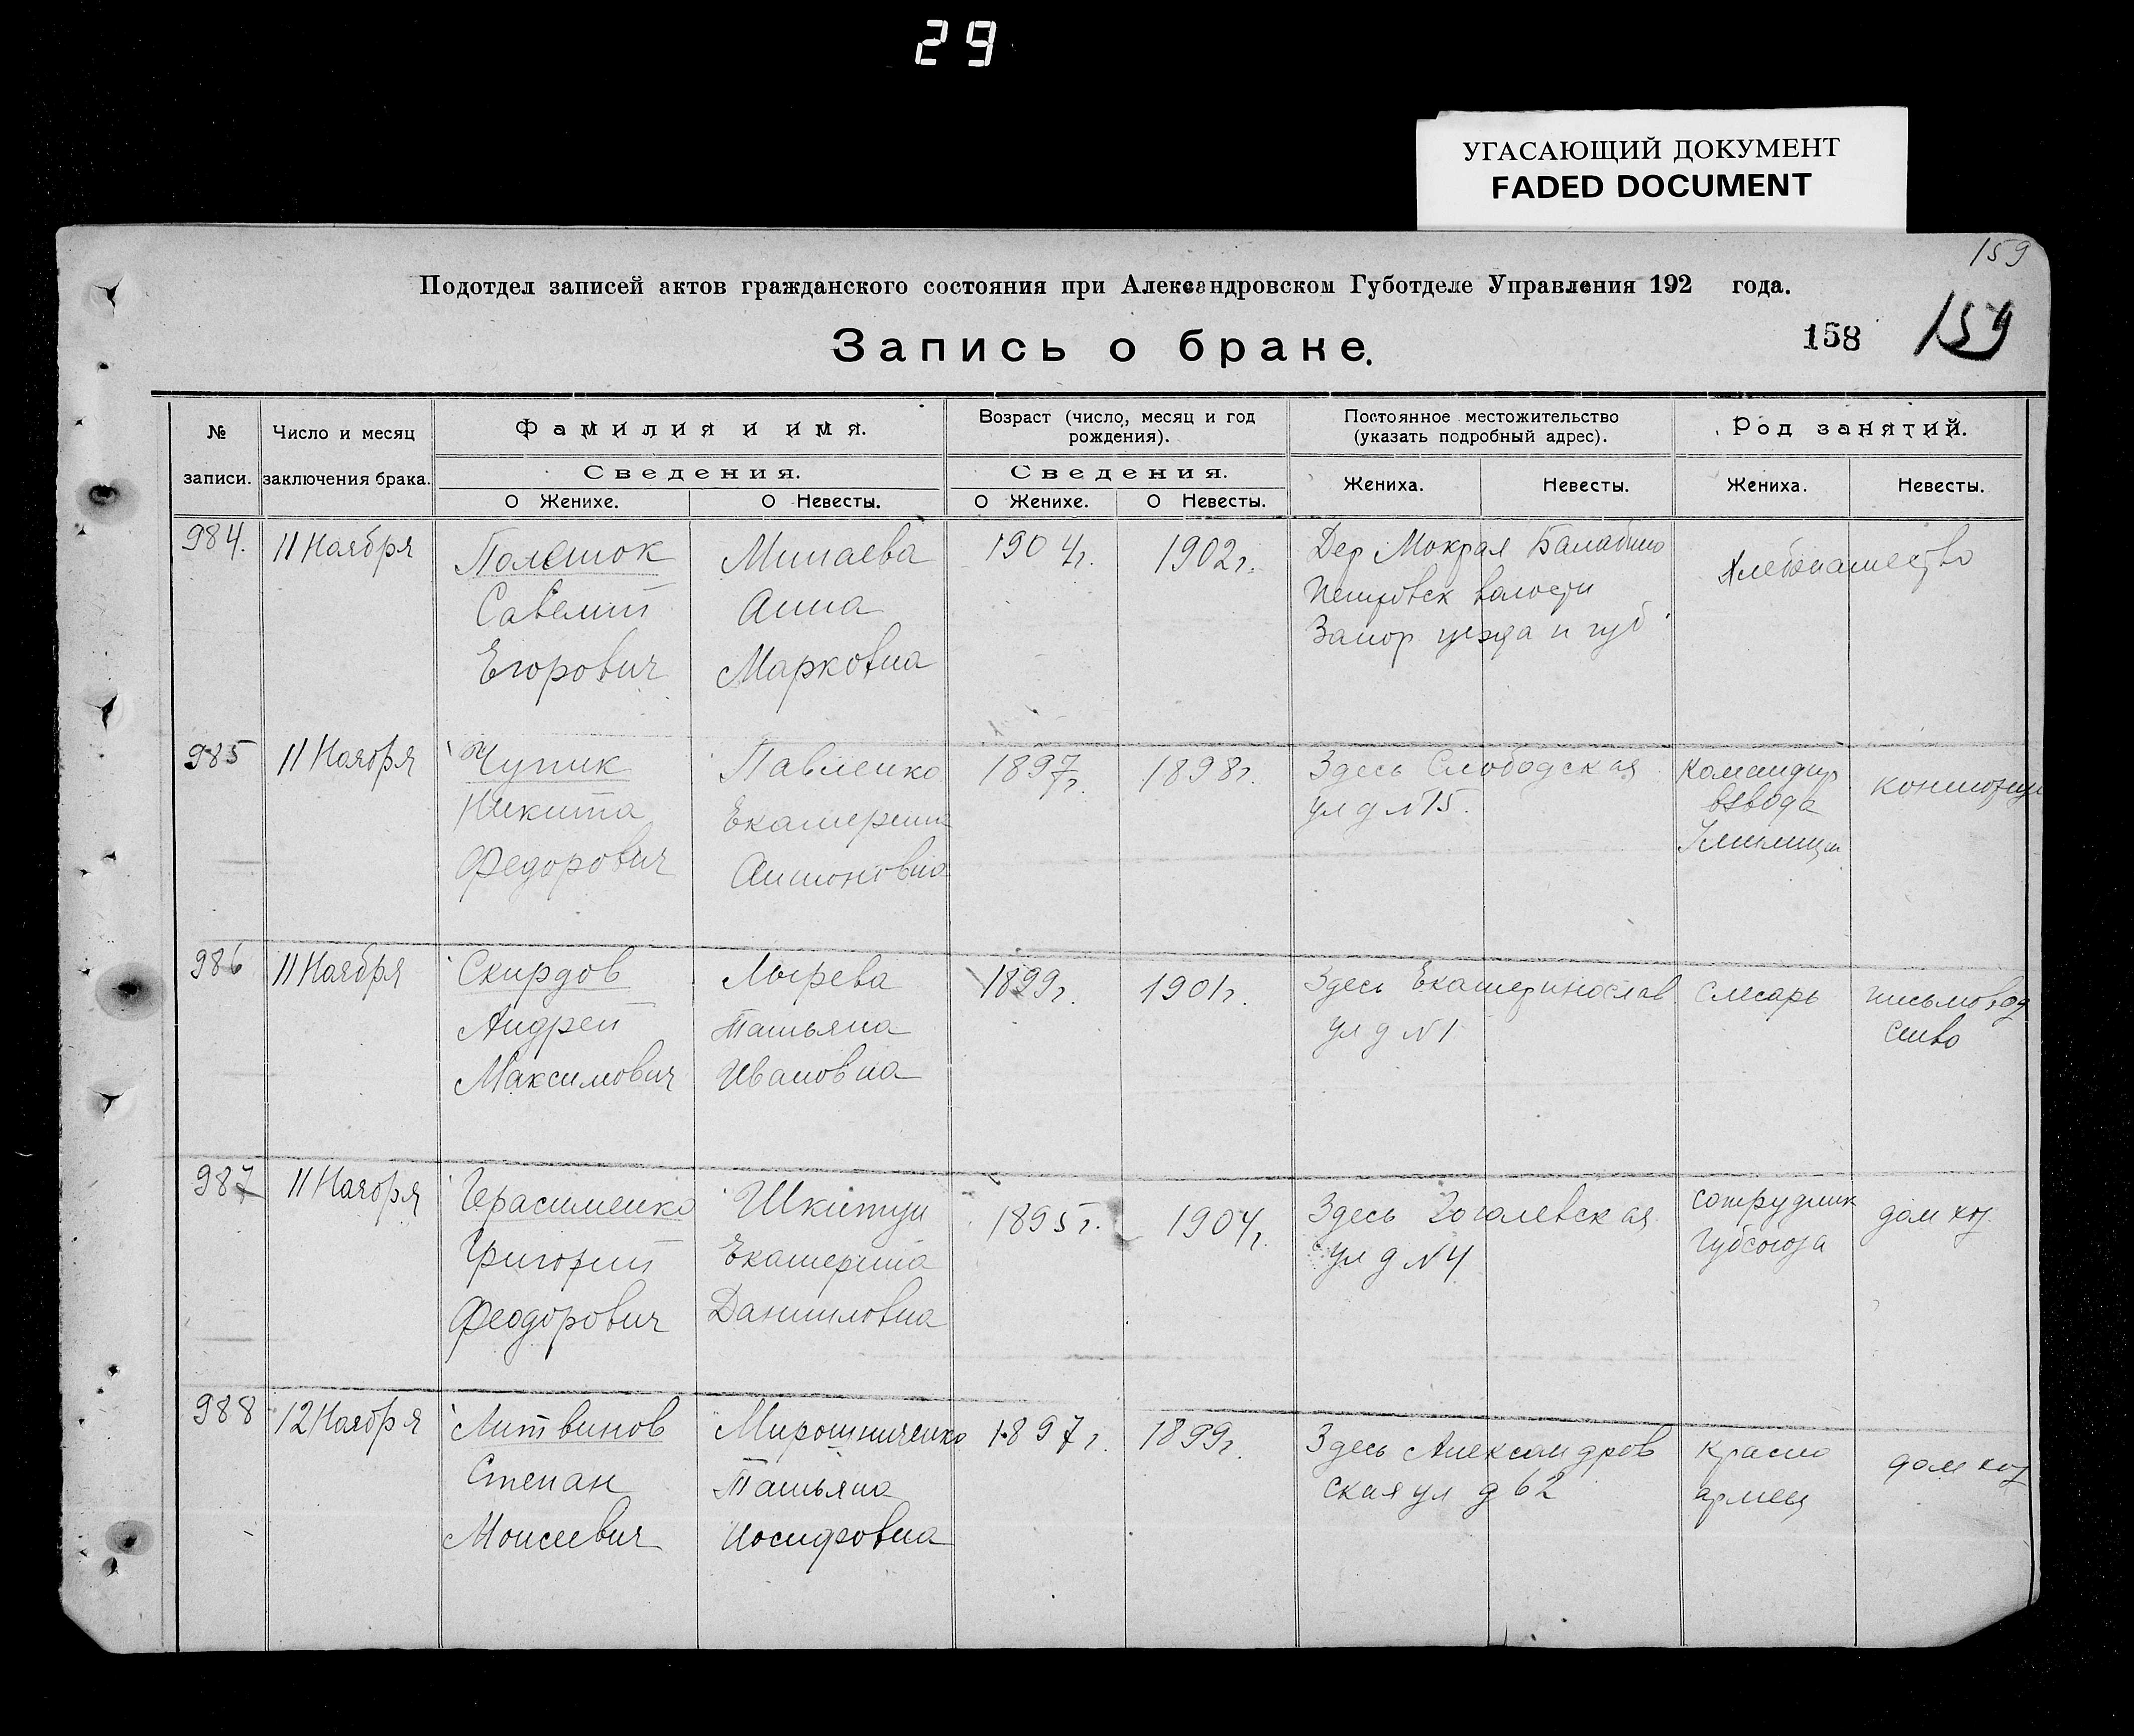 29
УГАСАЮЩИЙ ДОКУМЕНТ
FADED DOCUMENT
159
Подотдел записей актов гражданского состояния при Александровском Губотделе Управления 192 года.
158 159
Запись о браке.
№ записи.
Число и месяц заключения брака.
Фамилия и имя.
Сведения.
О Женихе. О Невесты.
Возраст (число, месяц и год рождения).
Сведения.
О Женихе. О Невесты.
Постоянное местожительство (указать подробный адрес).
Жениха. Невесты.
Род занятий.
Жениха. Невесты.
984. 11 Ноября
Полешок
Савелий
Егорович
Минаева
Анна
Марковна
1904г. 1902г.
Дер Мокрая Балабино
Петровск волости
Запор уезда и губ
Хлебопашество
985 11 Ноября
Чупик
Никита
Федорович
Павленко
Екатерина
Антоновна
1897г. 1898г.
Здесь Слободская
ул д №15.
Командир
взвода
986 11 Ноября
Скирдов
Андрей
Максимович
Лырева
Татьяна
Ивановна
1899г. 1901г.
Здесь Екатеринослав
ул д №1
слесарь
письмовод
ство
987 11 Ноября
Герасименко
Григорий
Феодорович
Шкитун
Екатерина
Даниловна
1895г. 1904г.
Здесь Гоголевская
ул д №4
сотрудник
Губсоюза
дом хоз.
988 12 Ноября
Литвинов
Степан
Моисеевич
Мирошниченко
Татьяна
Иосифовна
1897г. 1899г.
Здесь Александров
ская ул д 62
красно
армеец
дом хоз